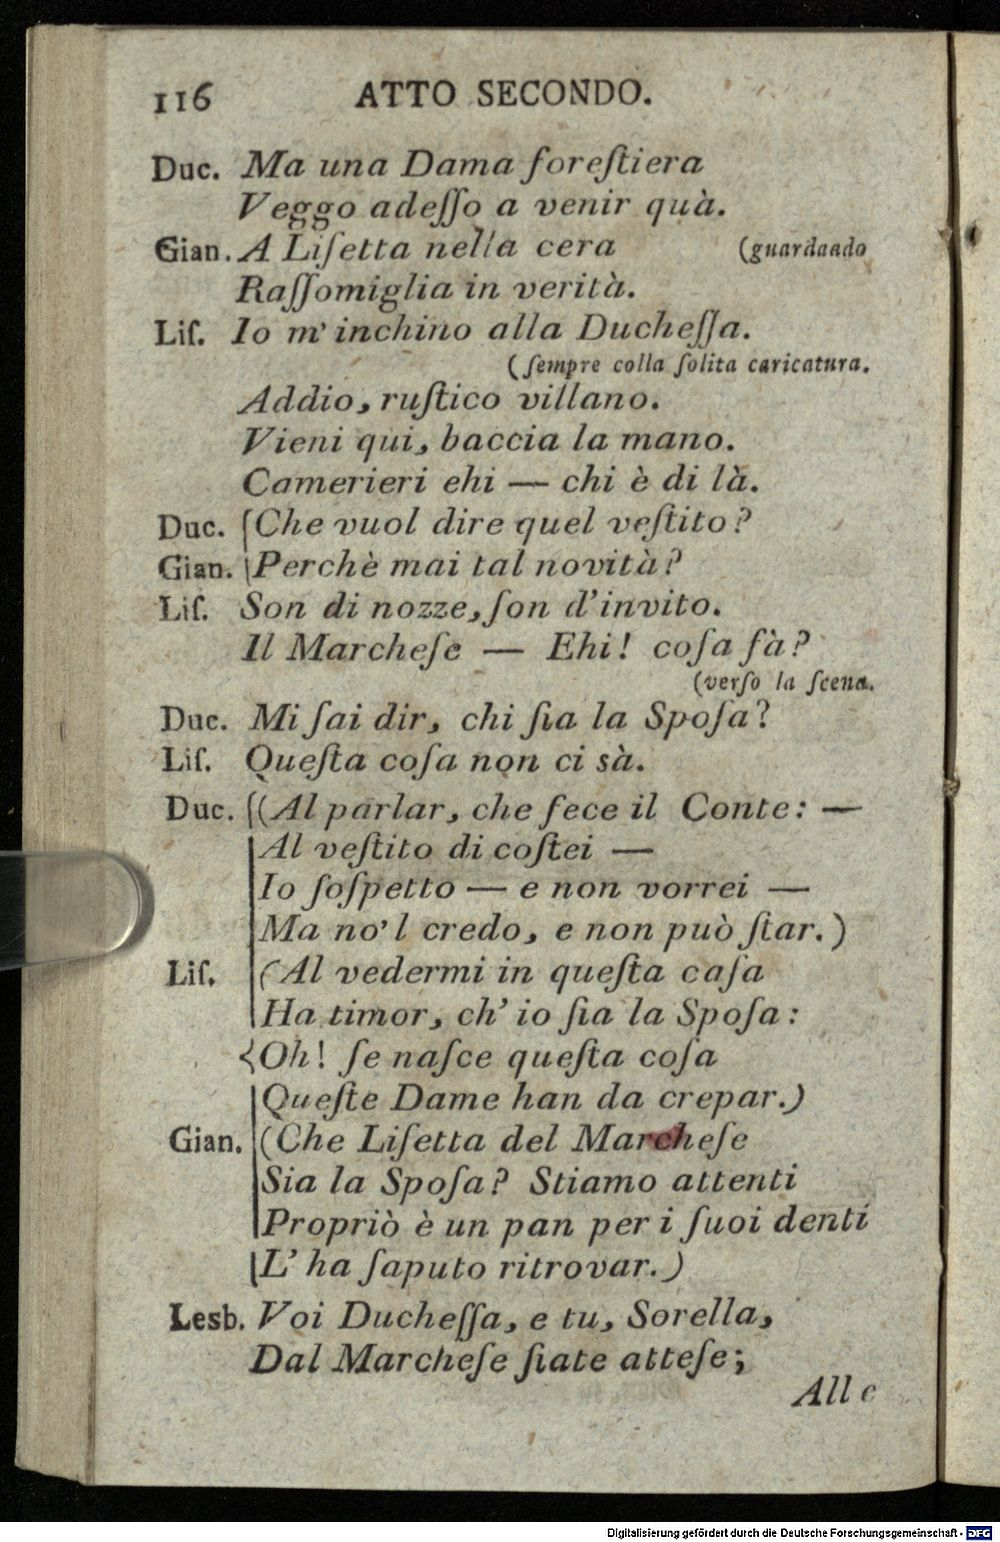 116 ATTO SECONDO.
Duc. Ma una Dama foreſtiera
Veggo adeſſo a venir quà.
Gian. A Liſetta nella cera (guardando
Raſſomiglia in verità.
Liſ. Io m' inchino alla Ducheſſa.
(ſempre colla ſolita caricatura.
Addio, ruſtico villano.
Vieni qui, baccia la mano.
Camerieri ehi — chi è di là.
Duc. {Che vuol dire quel veſtito?
Gian. {Perchè mai tal novità?
Liſ. Son di nozze, ſon d'invito.
Il Marcheſe — Ehi! coſa fà?
(verſo la ſcena.
Duc. Mi ſai dir, chi ſia la Spoſa?
Liſ. Queſta coſa non ci sà.
Duc. {(Al parlar, che fece il Conte: —
Al veſtito di coſtei —
Io ſoſpetto — e non vorrei —
Ma no'l credo, e non può ſtar.)
Liſ. (Al vedermi in queſta caſa
Ha timor, ch' io ſia la Spoſa:
Oh! ſe naſce queſta coſa
Queſte Dame han da crepar.)
Gian. (Che Liſetta del Marcheſe
Sia la Spoſa? Stiamo attenti
Propriò è un pan per i ſuoi denti
L' ha ſaputo ritrovar.)
Lesb. Voi Ducheſſa, e tu, Sorella,
Dal Marcheſe ſiate atteſe;
All e
Digitalisierung gefördert durch die Deutsche Forschungsgemeinschaft - DFG